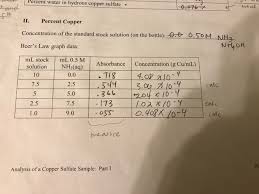 Percent water in hydrous copper sulfate =
0.376
II. Percent Copper
Concentration of the standard stock solution (on the bottle) 0.50M NH₃
NH₄OH
Beer's Law graph data:
mL stock solution | mL 0.5 M NH₃(aq) | Absorbance | Concentration (g Cu/mL)
10 | 0.0 | .718 | 4.08 x10⁻⁴
7.5 | 2.5 | .549 | x10⁻⁴ calc
5.0 | 5.0 | .366 | 2.04 x10⁻⁴ calc
2.5 | 7.5 | .173 | 1.02 x10⁻⁴ calc
1.0 | 9.0 | .035 | 0.408 x10⁻⁴ calc
Analysis of a Copper Sulfate Sample: Part I